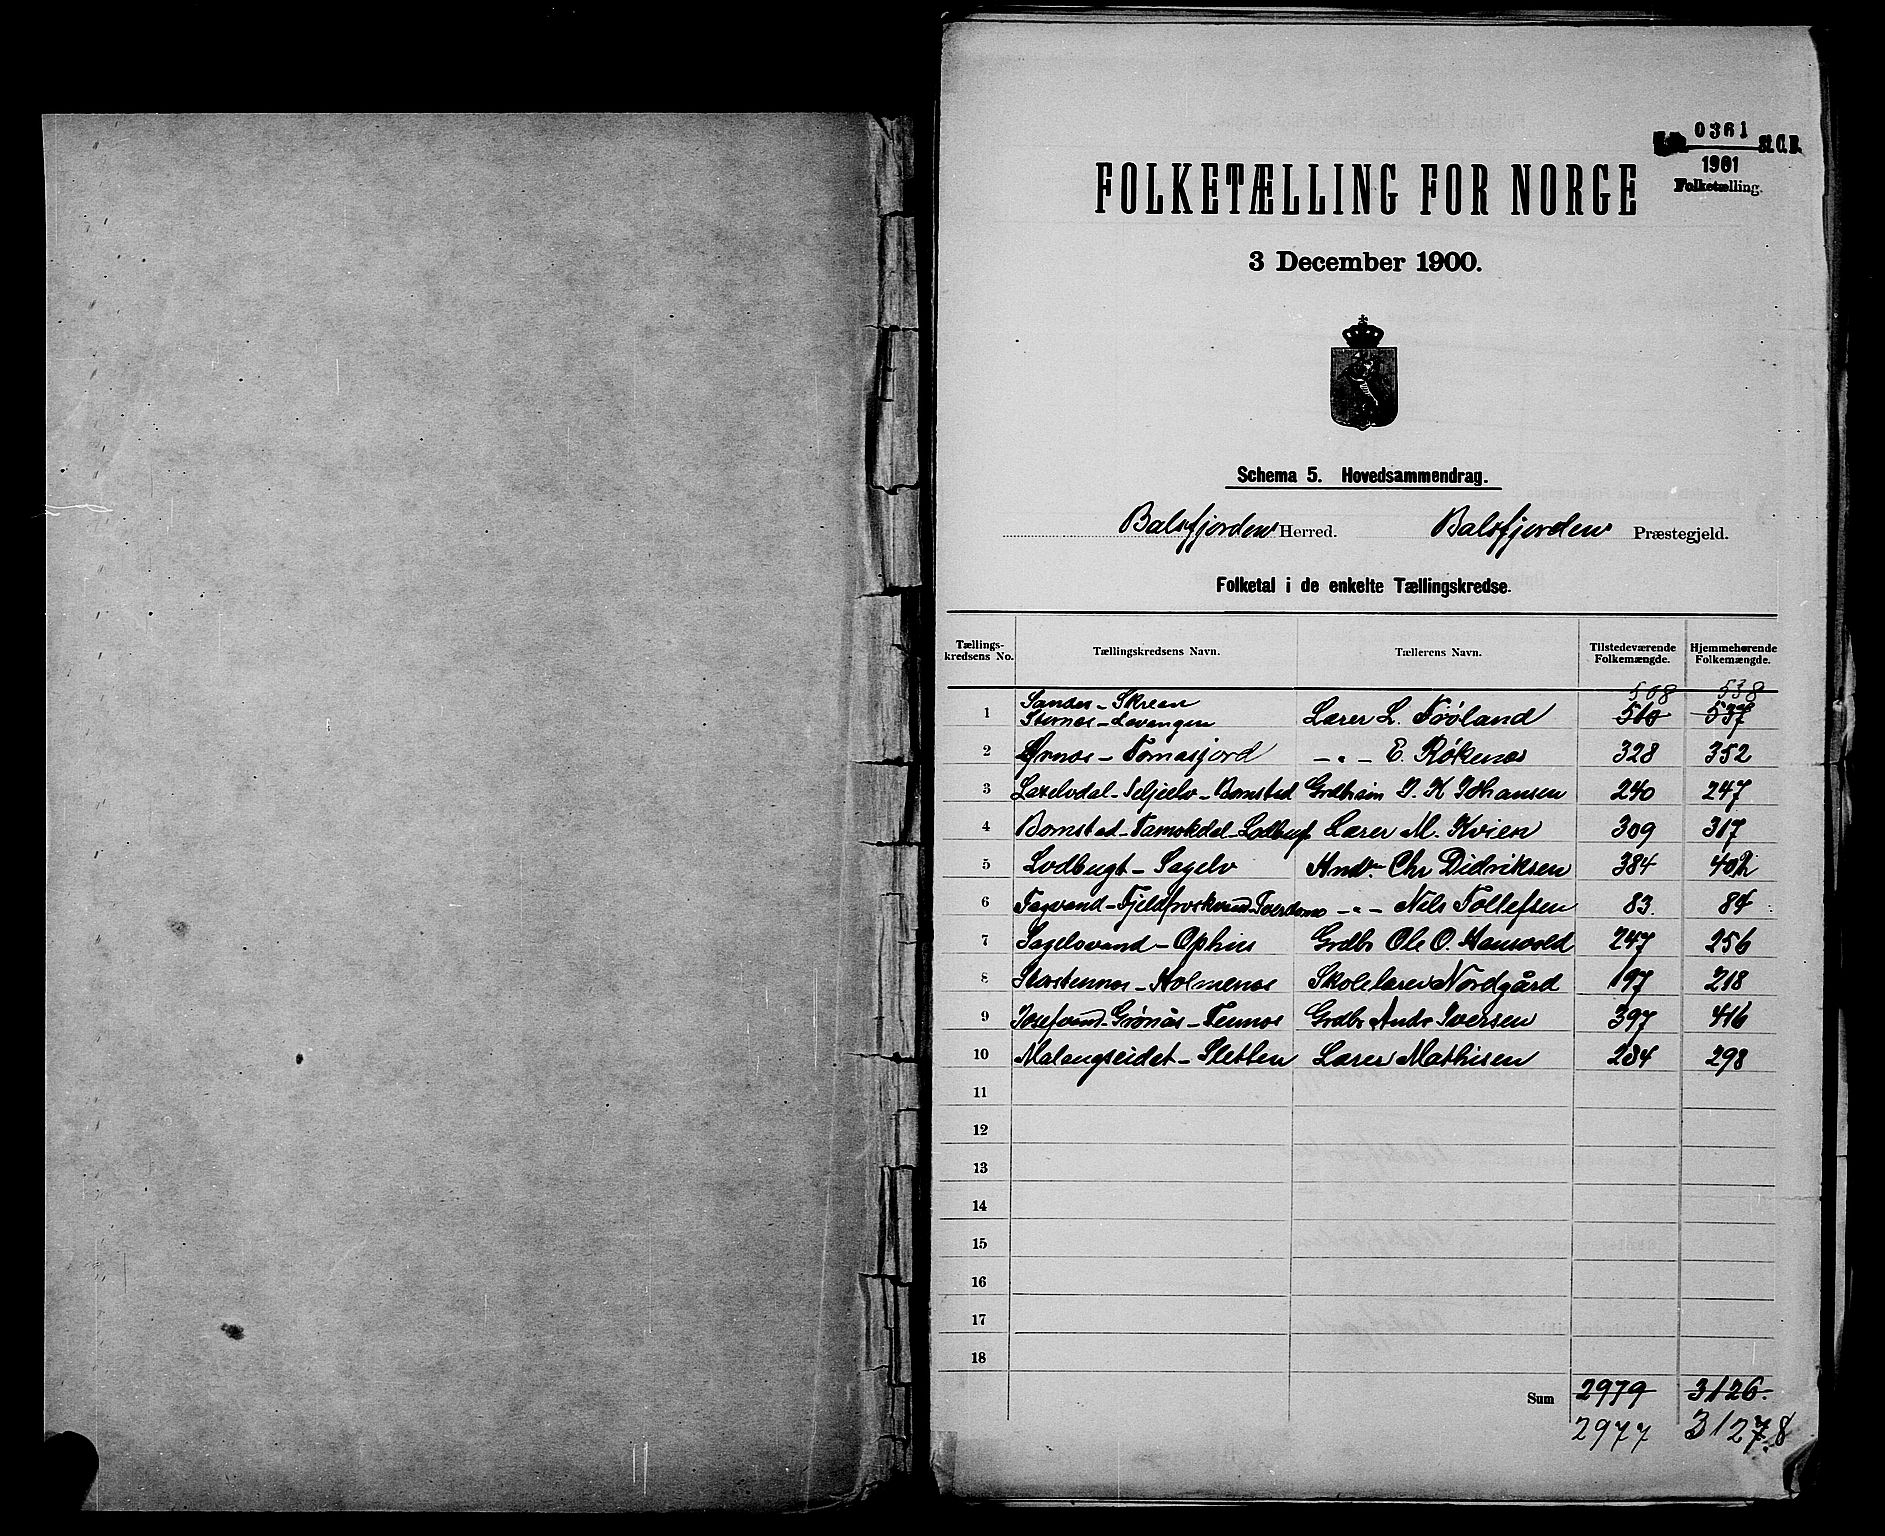 0361
St. C. B.
1901
Folketælling.
FOLKETÆLLING FOR NORGE
3 December 1900.
Schema 5. Hovedsammendrag.
Balsfjorden Herred. Balsfjorden Præstegjeld.
Folketal i de enkelte Tællingskredse.
Tællings-kredsens No. Tællingskredsens Navn. Tællerens Navn. Tilstedeværende Folkemængde. Hjemmehørende Folkemængde.
508 538
1 Sandør - Skreen Stornes - Lavangen Lærer L. 510 537
2 Ørnæs - Tomasjord - " - E. Røkenæs 328 352
3 Laxelvdal - Seljeelv - Bomstad Grdbrsøn I. K. Johansen 240 247
4 Bomstad - Tamokdal - Lodbugt Lærer M. Kvien 309 317
5 Lodbugt - Sagelv Chr Didriksen 384 402
6 Tagvand - Fjeldfroskvand - - " - Nils Tollefsen 83. 84
7 Sagelvvand - Ophus Grdbr Ole O. 247 256
8 Storstennæs - Holmenæs Skolelærer Nordgård 197 218
9 Josefvand - Grønås - Tennæs Grdbr Andr Iversen 397 416
10 Malangseidet - Sletten Lærer Mathisen 284 298
11
12
13
14
15
16
17
18
Sum 2979 3126.
2977 3127.8